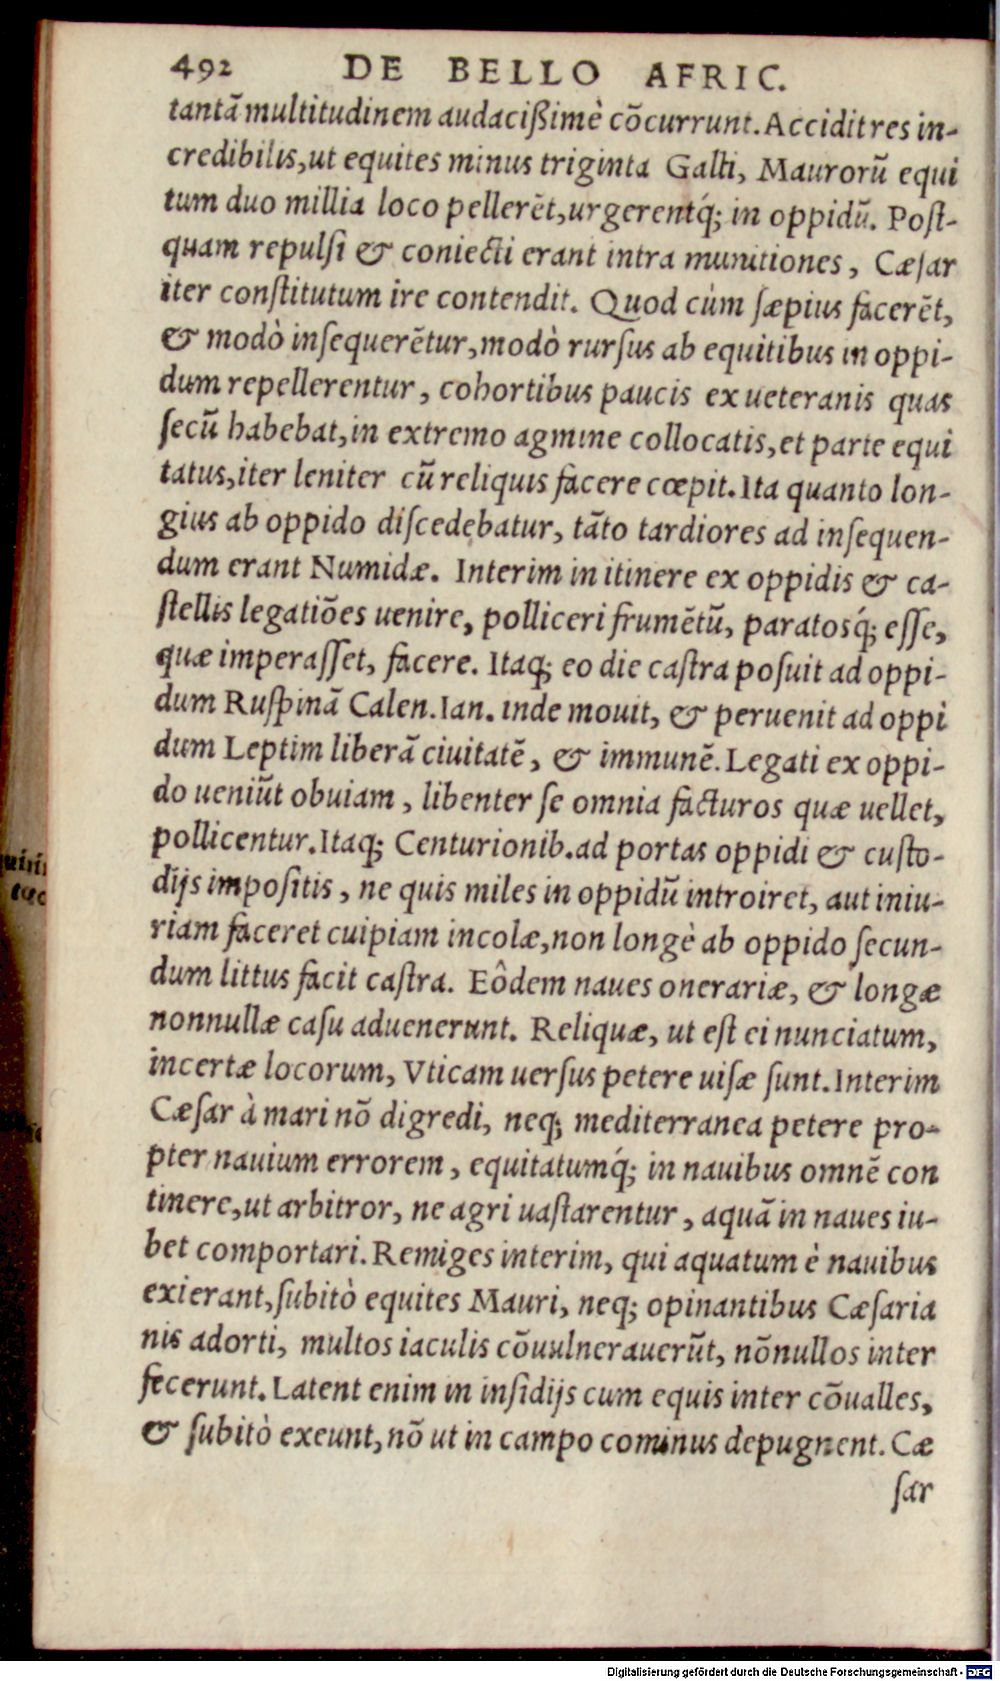 492 DE BELLO AFRIC.
tantā multitudinem audacißimè cōcurrunt. Accidit res in-
credibilis, ut equites minus triginta Galli, Maurorū equi
tum duo millia loco pellerēt, urgerentq́; in oppidū. Post-
quam repulsi & coniecti erant intra munitiones, Cæsar
iter constitutum ire contendit. Quod cùm sæpius facerēt,
& modò insequerētur, modò rursus ab equitibus in oppi-
dum repellerentur, cohortibus paucis ex ueteranis quas
secū habebat, in extremo agmine collocatis, et parte equi
tatus, iter leniter cū reliquis facere cœpit. Ita quanto lon-
gius ab oppido discedebatur, tāto tardiores ad insequen-
dum erant Numidæ. Interim in itinere ex oppidis & ca-
stellis legatiōes uenire, polliceri frumētū, paratosq́; esse,
quæ imperasset, facere. Itaq; eo die castra posuit ad oppi-
dum Ruspinā Calen. Ian. inde mouit, & peruenit ad oppi
dum Leptim liberā ciuitatē, & immunē. Legati ex oppi-
do ueniūt obuiam, libenter se omnia facturos quæ uellet,
pollicentur. Itaq; Centurionib. ad portas oppidi & custo-
dijs impositis, ne quis miles in oppidū introiret, aut iniu-
riam faceret cuipiam incolæ, non longè ab oppido secun-
dum littus facit castra. Eôdem naues onerariæ, & longæ
nonnullæ casu aduenerunt. Reliquæ, ut est ei nunciatum,
incertæ locorum, Vticam uersus petere uisæ sunt. Interim
Cæsar à mari nō digredi, neq; mediterranea petere pro-
pter nauium errorem, equitatumq́; in nauibus omnē con
tinere, ut arbitror, ne agri uastarentur, aquā in naues iu-
bet comportari. Remiges interim, qui aquatum è nauibus
exierant, subitò equites Mauri, neq; opinantibus Cæsaria
nis adorti, multos iaculis cōuulnerauerūt, nōnullos inter
fecerunt. Latent enim in insidijs cum equis inter cōualles,
& subitò exeunt, nō ut in campo cominus depugnent. Cæ
sar
Digitalisierung gefördert durch die Deutsche Forschungsgemeinschaft - DFG